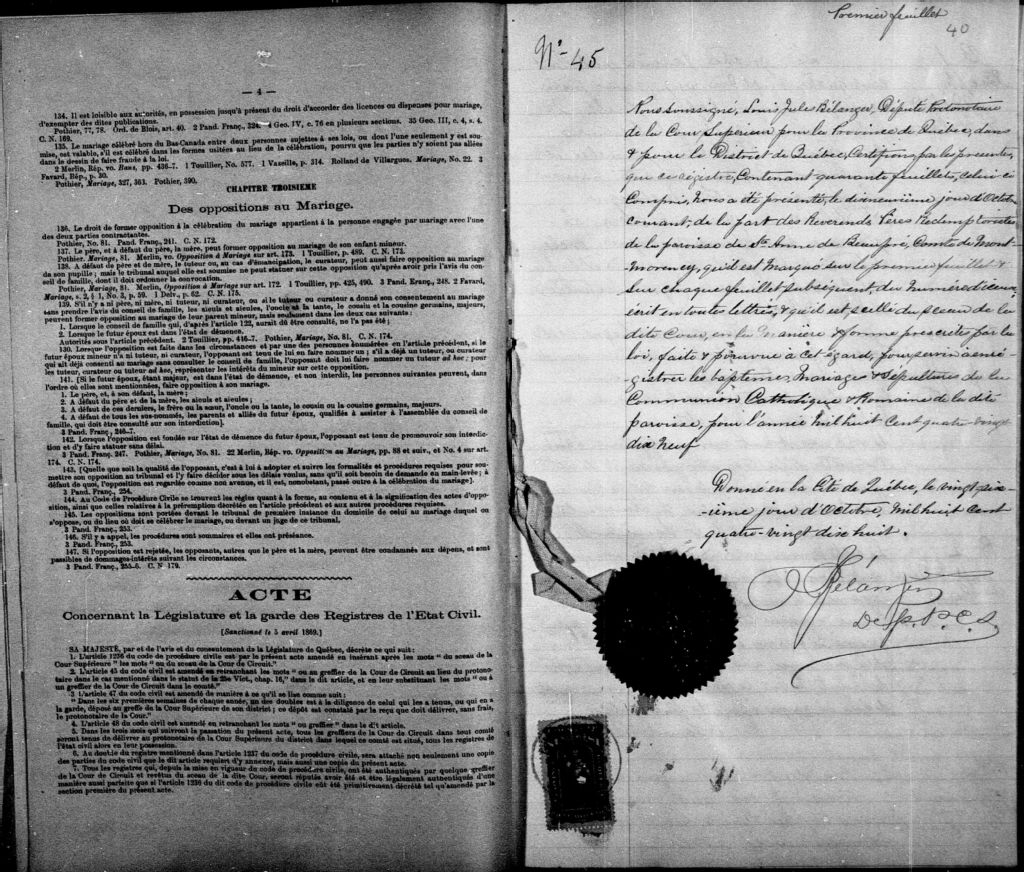 — 4 —
134. Il est loisible aux autorités, en possession jusqu'à présent du droit d'accorder des licences ou dispenses pour mariage,
d'exempter des dites publications.
Pothier, 77, 78. Ord. de Blois, art. 40. 2 Pand. Franç., 324. 4 Geo. IV, c. 76 en plusieurs sections. 35 Geo. III, c. 4, s. 4.
C. N. 169.
135. Le mariage célébré hors du Bas-Canada entre deux personnes sujettes à ses lois, ou dont l'une seulement y est sou-
mise, est valable, s'il est célébré dans les formes usitées au lieu de la célébration, pourvu que les parties n'y soient pas allées
dans le dessin de faire fraude à la loi.
2 Merlin, Rép. vo. Bans, pp. 436-7. 1 Touillier, No. 577. 1 Vazeille, p. 314. Rolland de Villargues, Mariage, No. 22. 3
Favard, Rép., p. 30.
Pothier, Mariage, 327, 363. Pothier, 390.
CHAPITRE TROISIEME
Des oppositions au Mariage.
136. Le droit de former opposition à la célébration du mariage appartient à la personne engagée par mariage avec l'une
des deux parties contractantes.
Pothier, No. 81. Pand. Franç., 241. C. N. 172.
137. Le père, et à défaut du père, la mère, peut former opposition au mariage de son enfant mineur.
Pothier, Mariage, 81. Merlin, vo. Opposition à Mariage sur art. 173. 1 Touillier, p. 489. C. N. 173.
138. A défaut de père et de mère, le tuteur ou, au cas d'émancipation, le curateur, peut aussi faire opposition au mariage
de son pupille; mais le tribunal auquel elle est soumise ne peut statuer sur cette opposition qu'après avoir pris l'avis du con-
seil de famille, dont il doit ordonner la convocation.
Pothier, Mariage, 81. Merlin, Opposition à Mariage sur art. 172. 1 Touillier, pp. 425, 490. 3 Pand. Franç., 248. 2 Favard,
Mariage, s. 2, § 1, No. 3, p. 59. 1 Delv., p. 62. C. N. 175.
139. S'il n'y a ni père, ni mère, ni tuteur, ni curateur, ou si le tuteur ou curateur a donné son consentement au mariage
sans prendre l'avis du conseil de famille, les aïeuls et aïeules, l'oncle et la tante, le cousin et la cousine germains, majeurs,
peuvent former opposition au mariage de leur parent mineur, mais seulement dans les deux cas suivants:
1. Lorsque le conseil de famille qui, d'après l'article 122, aurait dû être consulté, ne l'a pas été;
2. Lorsque le futur époux est dans l'état de démence.
Autorités sous l'article précédent. 2 Touillier, pp. 416-7. Pothier, Mariage, No. 81. C. N. 174.
130. Lorsque l'opposition est faite dans ces circonstances et par une des personnes énumérées en l'article précédent, si le
futur époux mineur n'a ni tuteur, ni curateur, l'opposant est tenu de lui en faire nommer un; s'il a déjà un tuteur, ou curateur
qui ait déjà consenti au mariage sans consulter le conseil de famille, l'opposant doit lui faire nommer un tuteur ad hoc; pour
les tuteur, curateur ou tuteur ad hoc, représenter les intérêts du mineur sur cette opposition.
141. [Si le futur époux, étant majeur, est dans l'état de démence, et non interdit, les personnes suivantes peuvent, dans
l'ordre où elles sont mentionnées, faire opposition à son mariage.
1. Le père, et, à son défaut, la mère;
2. A défaut du père et de la mère, les aïeuls et aïeules;
3. A défaut de ces derniers, le frère ou la sœur, l'oncle ou la tante, le cousin ou la cousine germains, majeurs.
4. A défaut de tous les sus-nommés, les parents et alliés du futur époux, qualifiés à assister à l'assemblée du conseil de
famille, qui doit être consulté sur son interdiction].
3 Pand. Franç., 246-7.
142. Lorsque l'opposition est fondée sur l'état de démence du futur époux, l'opposant est tenu de promouvoir son interdic-
tion et d'y faire statuer sans délai.
3 Pand. Franç. 247. Pothier, Mariage, No. 81. 22 Merlin, Rép. vo. Opposition au Mariage, pp. 88 et suiv., et No. 4 sur art.
174. C. N. 174.
143. [Quelle que soit la qualité de l'opposant, c'est à lui à adopter et suivre les formalités et procédures requises pour sou-
mettre son opposition au tribunal et l'y faire décider sous les délais voulus, sans qu'il soit besoin de demande en main-levée; à
défaut de quoi, l'opposition est regardée comme non avenue, et il est, nonobstant, passé outre à la célébration du mariage].
3 Pand. Franç., 254.
144. Au Code de Procédure Civile se trouvent les règles quant à la forme, au contenu et à la signification des actes d'oppo-
sition, ainsi que celles relatives à la péremption décrétée en l'article précédent et aux autres procédures requises.
145. Les oppositions sont portées devant le tribunal de première instance du domicile de celui au mariage duquel on
s'oppose, ou du lieu où doit se célébrer le mariage, ou devant un juge de ce tribunal.
3 Pand. Franç., 253.
146. S'il y a appel, les procédures sont sommaires et elles ont préséance.
3 Pand. Franç., 253.
147. Si l'opposition est rejetée, les opposants, autres que le père et la mère, peuvent être condamnés aux dépens, et sont
passibles de dommages-intérêts suivant les circonstances.
3 Pand. Franç., 255-6. C. N. 179.
ACTE
Concernant la Législature et la garde des Registres de l'Etat Civil.
[Sanctionné le 5 avril 1869.]
SA MAJESTÉ, par et de l'avis et du consentement de la Législature de Québec, décrète ce qui suit:
1. L'article 1236 du code de procédure civile est par le présent acte amendé en insérant après les mots "du sceau de la
Cour Supérieure" les mots "ou du sceau de la Cour de Circuit."
2. L'article 45 du code civil est amendé en retranchant les mots "ou au greffier de la Cour de Circuit au lieu du protono-
taire dans le cas mentionné dans le statut de la 25e Vict., chap. 16," dans le dit article, et en leur substituant les mots "ou à
un greffier de la Cour de Circuit dans le comté."
3. L'article 47 du code civil est amendé de manière à ce qu'il se lise comme suit:
"Dans les six premières semaines de chaque année, un des doubles est à la diligence de celui qui les a tenus, ou qui en a
la garde, déposé au greffe de la Cour Supérieure de son district; ce dépôt est constaté par le reçu que doit délivrer, sans frais,
le protonotaire de la Cour."
4. L'article 48 du code civil est amendé en retranchant les mots "ou greffier" dans le dit article.
5. Dans les trois mois qui suivront la passation du présent acte, tous les greffiers de la Cour de Circuit dans tout comté
seront tenus de délivrer au protonotaire de la Cour Supérieure du district dans lequel ce comté est situé, tous les registres de
l'état civil alors en leur possession.
6. Au double du registre mentionné dans l'article 1237 du code de procédure civile, sera attaché non seulement une copie
des parties du code civil que le dit article requiert d'y annexer, mais aussi une copie du présent acte.
7. Tous les registres qui, depuis la mise en vigueur du code de procédure civile, ont été authentiqués par quelque greffier
de la Cour de Circuit et revêtu du sceau de la dite Cour, seront réputés avoir été et être légalement authentiqués d'une
manière aussi parfaite que si l'article 1236 du dit code de procédure civile eut été primitivement décrété tel qu'amendé par la
section première du présent acte.
Premier feuillet
40
No. 45
Nous soussigné, Louis Jules Bélanger, Député Protonotaire
de la Cour Supérieur pour la Province de Québec, dans
& pour le District de Québec, Certifions par les presentes,
que ce régistre, Contenant quarante feuillets, celui-ci
Compris, Nous a été présenté, le dixneuvième jour d'Octobre
courant, de la part des Reverends Pères Redemptoristes
de la paroisse de Ste Anne de Beaupré, Comté de Mont-
morency, qu'il est Marqué sur le premier feuillet &
sur chaque feuillet subséquent, du Numéro d'icelui,
écrit en toutes lettres, & qu'il est scellé du sceau de la
dite Cour, en la Manière & forme prescrites par la
loi, faite & pourvue à cet égard, pour servir à enré-
gistrer les baptêmes, Mariages & sépultures de la
Communion Catholique & Romaine de la dite
paroisse, pour l'année mil huit Cent quatre-vingt
dix Neuf
Donné en la Cité de Québec, le vingt six-
-ième jour d'Octobre, Mil huit Cent
quatre-vingt dix huit.
Bélanger
Dep. P. C. S.